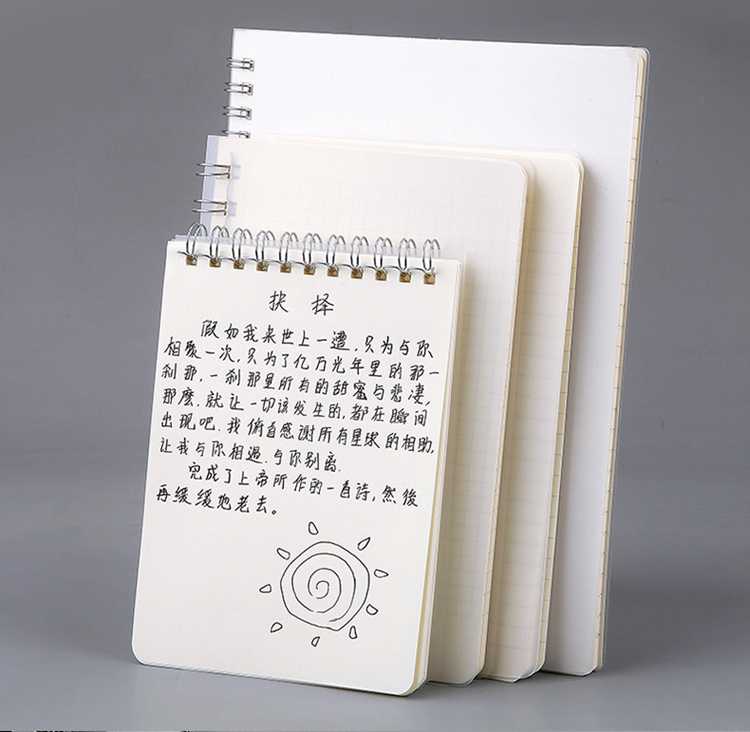 抉择
假如我来世上一遭，只为与你
相聚一次，只为了亿万光年里的那一
刹那，一刹那里所有的甜蜜与悲凄，
那麽，就让一切该发生的，都在瞬间
出现吧．我俯首感谢所有星球的相助，
让我与你相遇．与你别离．
完成了上帝所作的一首诗，然後
再缓缓地老去。